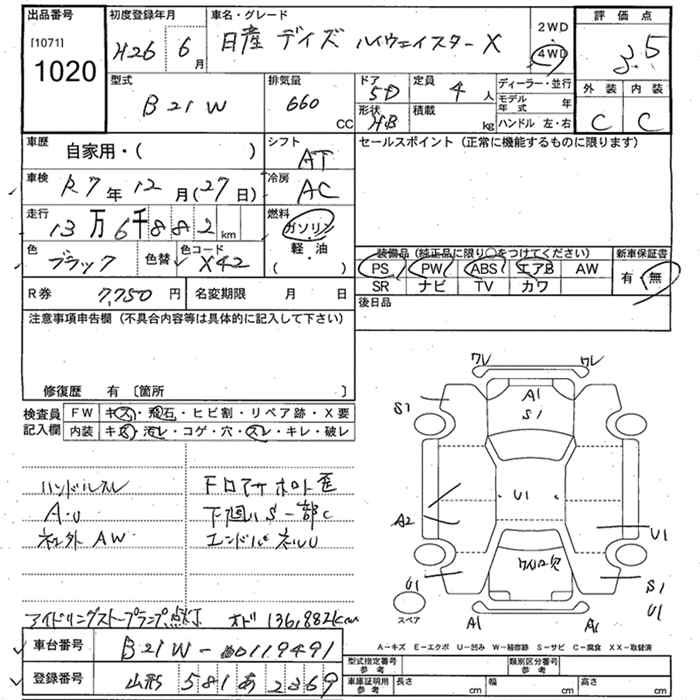 出品番号 初度登録年月 車名・グレード 2WD 評価点
[1071] H26 6月 日産 デイズ ハイウェイスターX 4WD 3.5
1020
型式 排気量 ドア 定員 ディーラー・並行 外装 内装
B21W 660 CC 5D 4人 モデル年式 年 C C
形状 HB 積載 kg ハンドル 左・右
車歴 自家用・( ) シフト AT セールスポイント (正常に機能するものに限ります)
車検 R7年12月(27日) 冷房 AC
走行 13万6千882km 燃料 ガソリン
軽・油
( )
色 ブラック 色替 色コード X42 装備品 (純正品に限り○をつけてください) 新車保証書
PS PW ABS エアB AW 有・無
SR ナビ TV カワ
R券 7,750円 名変期限 月 日 後日品
注意事項申告欄 (不具合内容等は具体的に記入して下さい)
修復歴 有 〔箇所 〕
検査員記入欄 FW キズ・飛石・ヒビ割・リペア跡・X要
内装 キズ・汚レ・コゲ・穴・スレ・キレ・破レ
ハンドルスレ
A・U
社外 AW
下廻りS 一部C
エンドパネルU
アイドリングストップランプ点灯 オド 136,882km
車台番号 B21W-0119491
登録番号 山形 581 あ 2369
ワレ ワレ
A1
S1
S1
U1
A2
U1
U1
S1
U1
A1 A1
スペア
A-キズ E-エクボ U-凹み W-補修跡 S-サビ C-腐食 XX-取替済
型式指定番号 参考 類別区分番号 参考
車庫証明用 参考 長さ cm 幅 cm 高さ cm